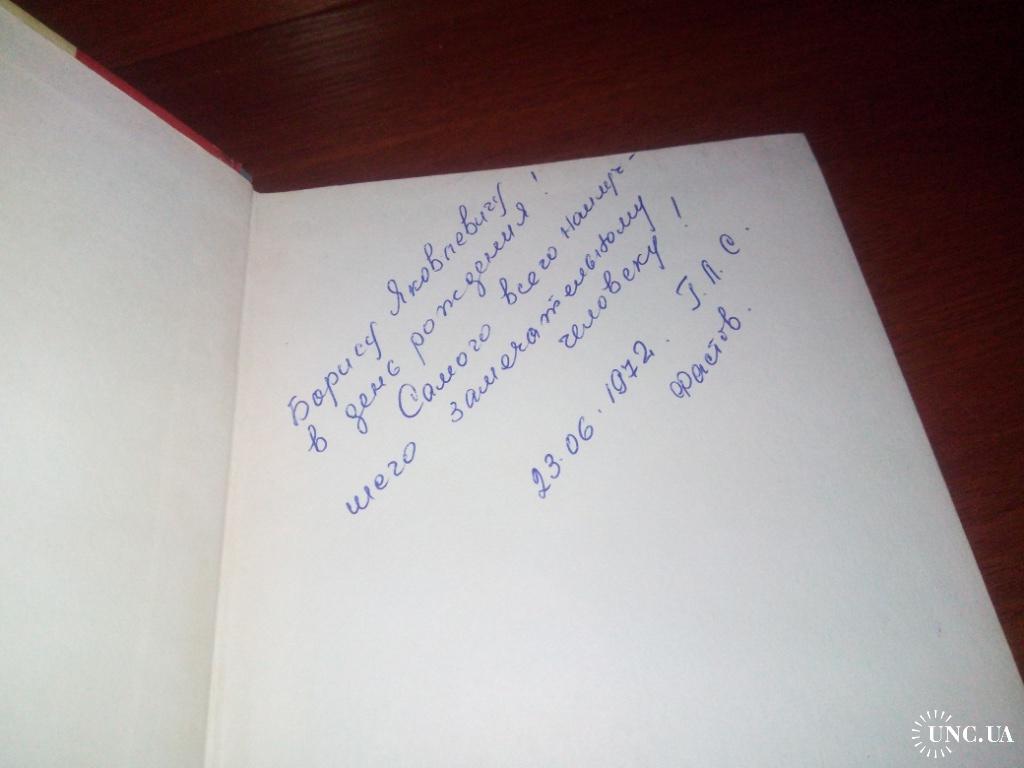 Борису Яковлевичу
в день рождения!
Самого всего наилуч-
шего замечательному
человеку!
23.06.1972. Г.Л.С.
Фастов.
UNC.UA